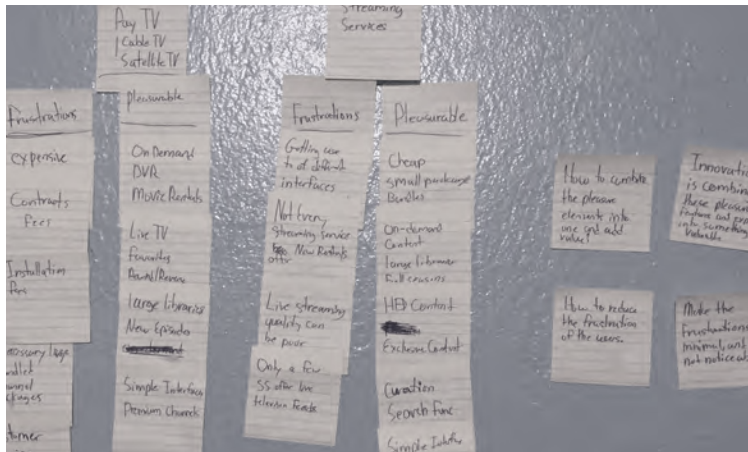 Pay TV
Cable TV
Satellite TV
Streaming
Services
Frustrations
expensive
Contracts
Fees
Installation
fees
Pleasurable
On Demand
DVR
Movie Rentals
Live TV
Favorites
large libraries
New Episodes
Simple Interface
Premium Channels
Frustrations
Getting use
to
interfaces
Not Every
streaming service
New Rentals
offer
Live streaming
quality can
be poor
Only a few
SS offer live
television feeds
Pleasurable
Cheap
small purchase
Bundles
On-demand
Content
large libraries
Full
HD Content
Exclusive Content
Curation
Search Func
Simple
How to combine
the pleasure
elements into
one and add
value?
Innovati
is combin
these pleasur
feature and
into something
Valuable
How to reduce
the frustration
of the users.
Make the
frustrations
minimal, and
not noticeab